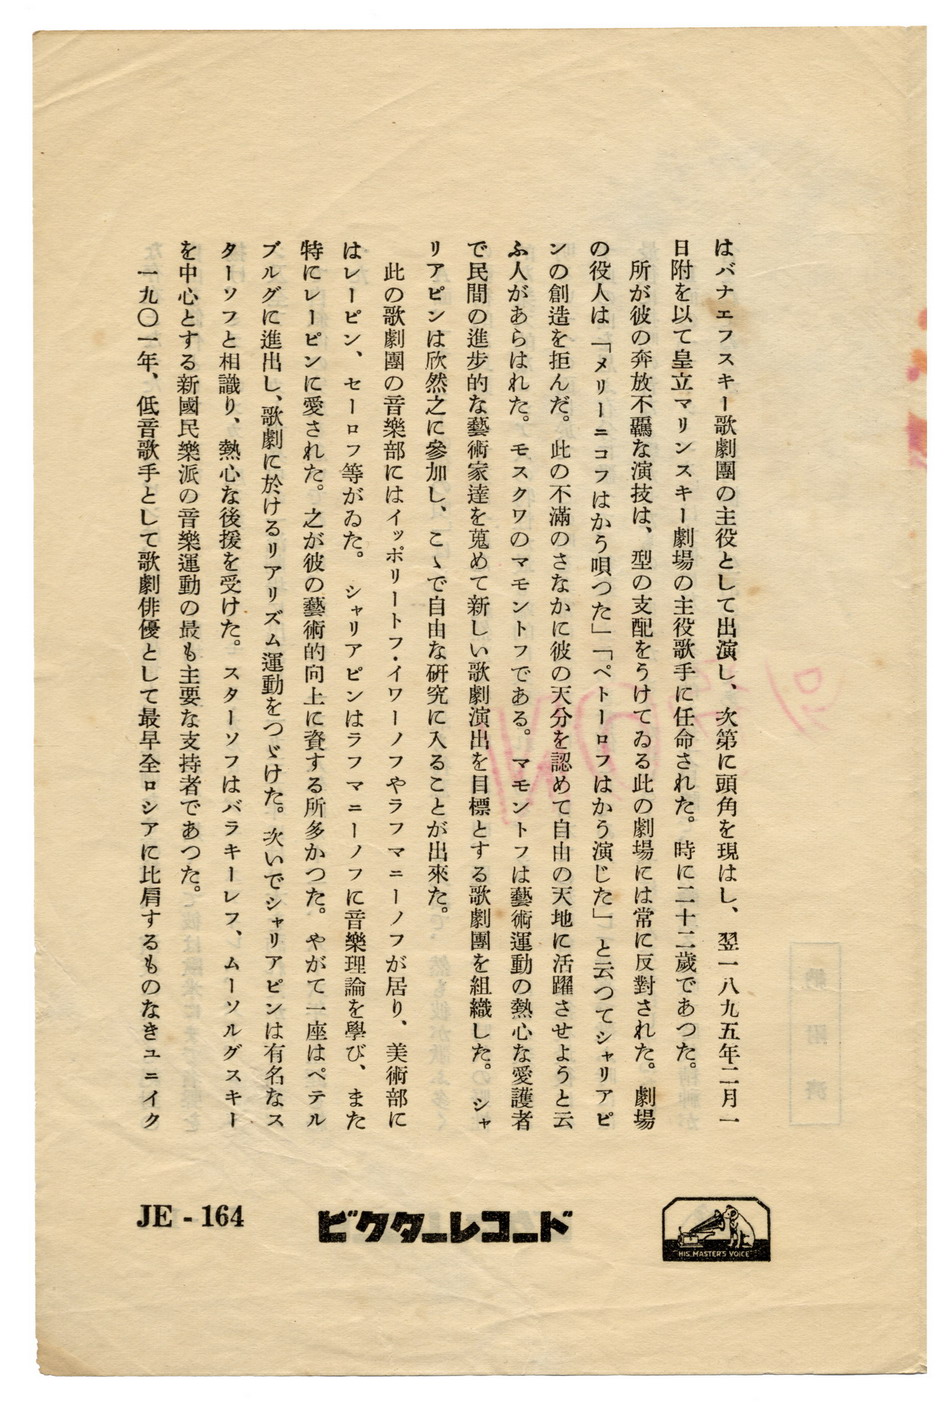 はバナエフスキー歌劇團の主役として出演し、次第に頭角を現はし、翌一八九五年二月一
日附を以て皇立マリンスキー劇場の主役歌手に任命された。時に二十二歲であつた。
所が彼の奔放不羈な演技は、型の支配をうけてゐる此の劇場には常に反對された。劇場
の役人は「メリーニコフはかう唄つた」「ペトーロフはかう演じた」と云つてシャリアピ
ンの創造を拒んだ。此の不滿のさなかに彼の天分を認めて自由の天地に活躍させようと云
ふ人があらはれた。モスクワのマモントフである。マモントフは藝術運動の熱心な愛護者
で民間の進步的な藝術家達を蒐めて新しい歌劇演出を目標とする歌劇團を組織した。シャ
リアピンは欣然之に參加し、こゝで自由な硏究に入ることが出來た。
此の歌劇團の音樂部にはイッポリートフ・イワーノフやラフマニーノフが居り、美術部に
はレーピン、セーロフ等がゐた。シャリアピンはラフマニーノフに音樂理論を學び、また
特にレーピンに愛された。之が彼の藝術的向上に資する所多かつた。やがて一座はペテル
ブルグに進出し、歌劇に於けるリアリズム運動をつゞけた。次いでシャリアピンは有名なス
ターソフと相識り、熱心な後援を受けた。スターソフはバラキーレフ、ムーソルグスキー
を中心とする新國民樂派の音樂運動の最も主要な支持者であつた。
一九〇一年、低音歌手として歌劇俳優として最早全ロシアに比肩するものなきユニイク
JE - 164
ビクターレコード
"HIS MASTER'S VOICE"